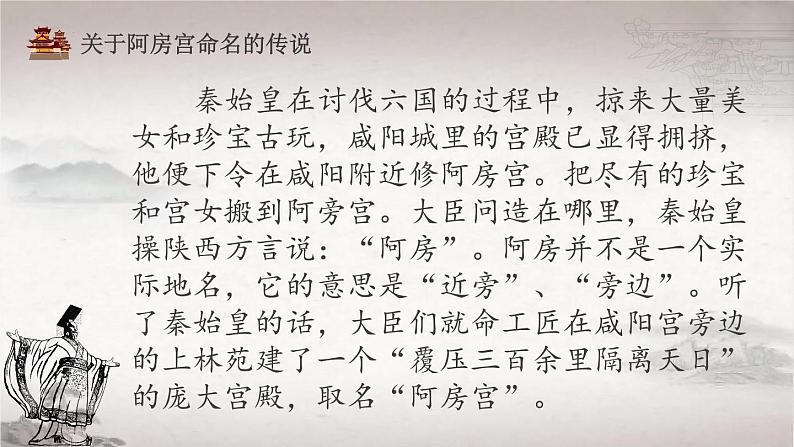 关于阿房宫命名的传说
秦始皇在讨伐六国的过程中，掠来大量美
女和珍宝古玩，咸阳城里的宫殿已显得拥挤，
他便下令在咸阳附近修阿房宫。把尽有的珍宝
和宫女搬到阿旁宫。大臣问造在哪里，秦始皇
操陕西方言说：“阿房”。阿房并不是一个实
际地名，它的意思是“近旁”、“旁边”。听
了秦始皇的话，大臣们就命工匠在咸阳宫旁边
的上林苑建了一个“覆压三百余里隔离天日”
的庞大宫殿，取名“阿房宫”。